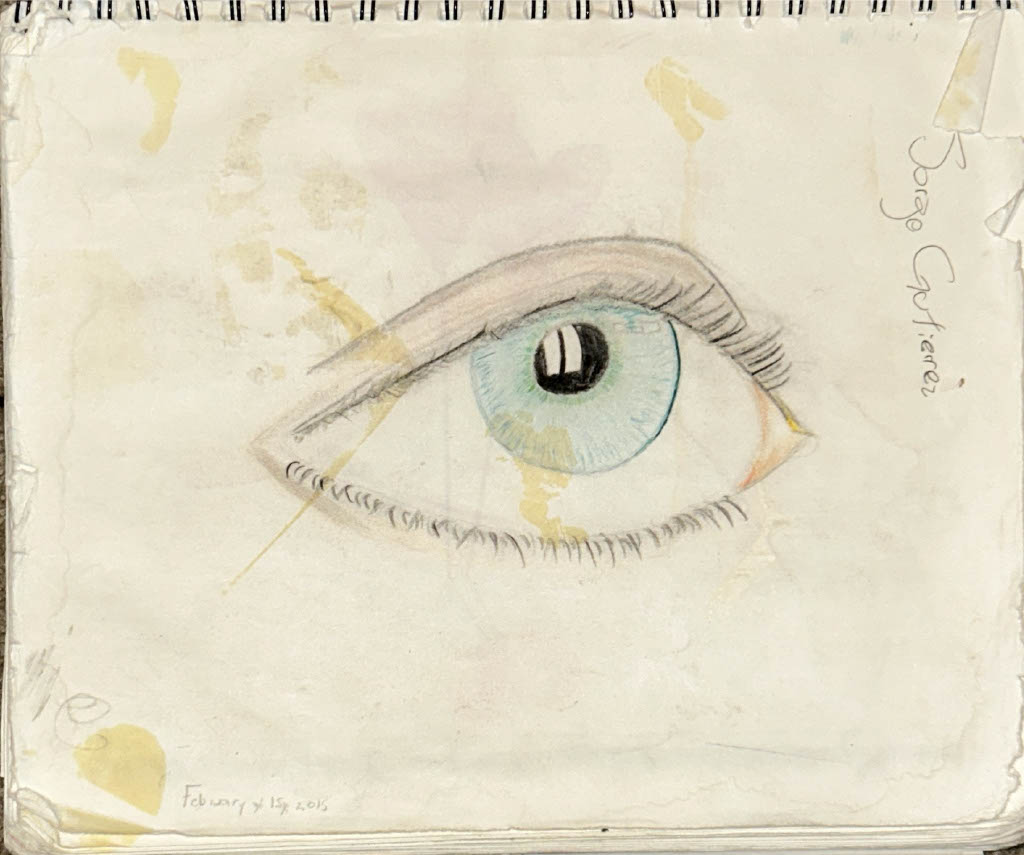 Jorge Gutierrez
February 15, 2015